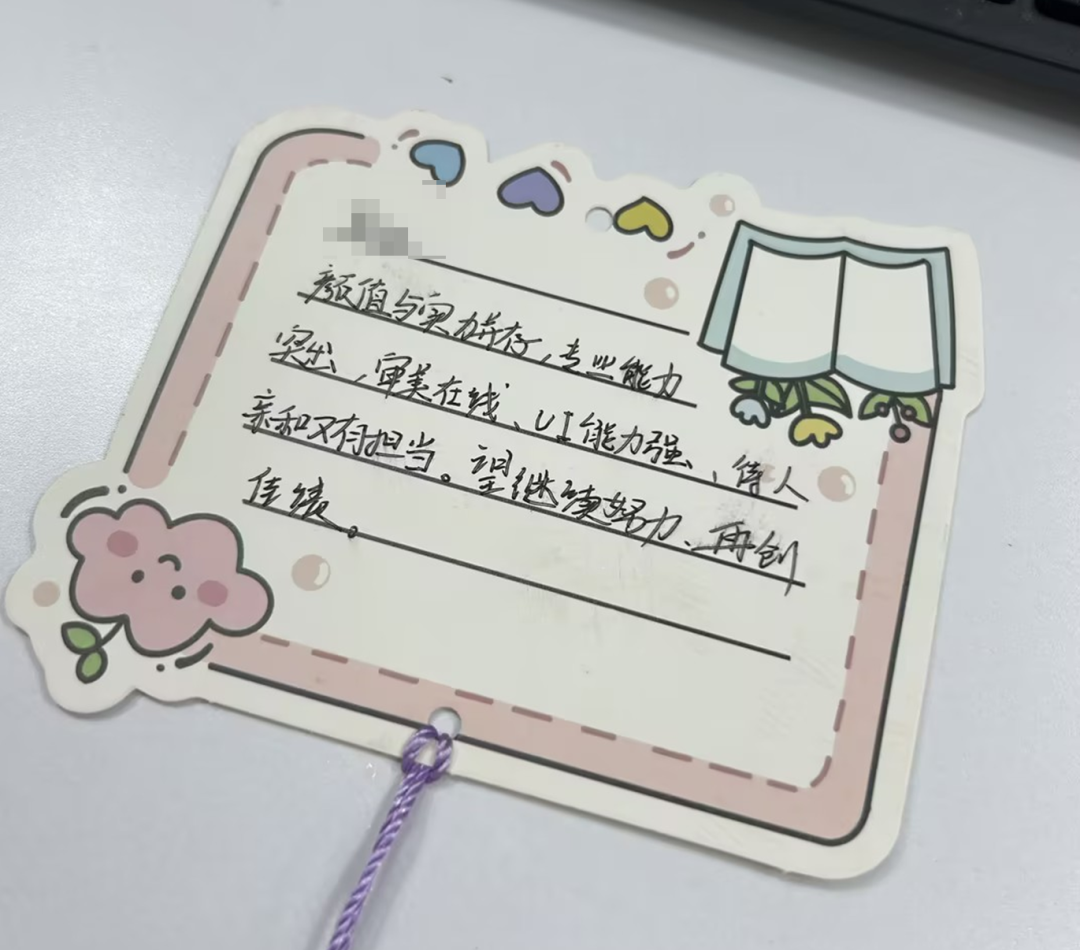 颜值与实力并存，专业能力
突出，审美在线、UI能力强、待人
亲和又有担当。望继续努力、再创
佳绩。